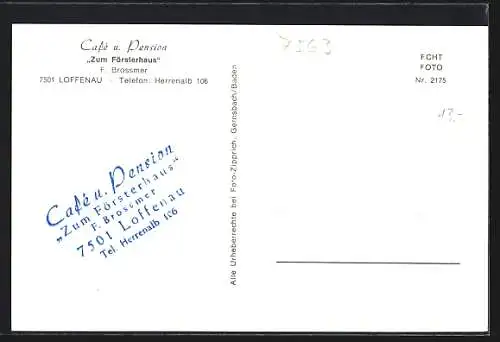 Café u. Pension
„Zum Försterhaus"
F. Brossmer
7501 LOFFENAU - Telefon: Herrenalb 106
Café u. Pension
„Zum Försterhaus"
F. Brossmer
7501 Loffenau
Tel. Herrenalb 106
Alle Urheberrechte bei Foto-Zipprich, Gernsbach/Baden
7563
ECHT
FOTO
Nr. 2175
12.-